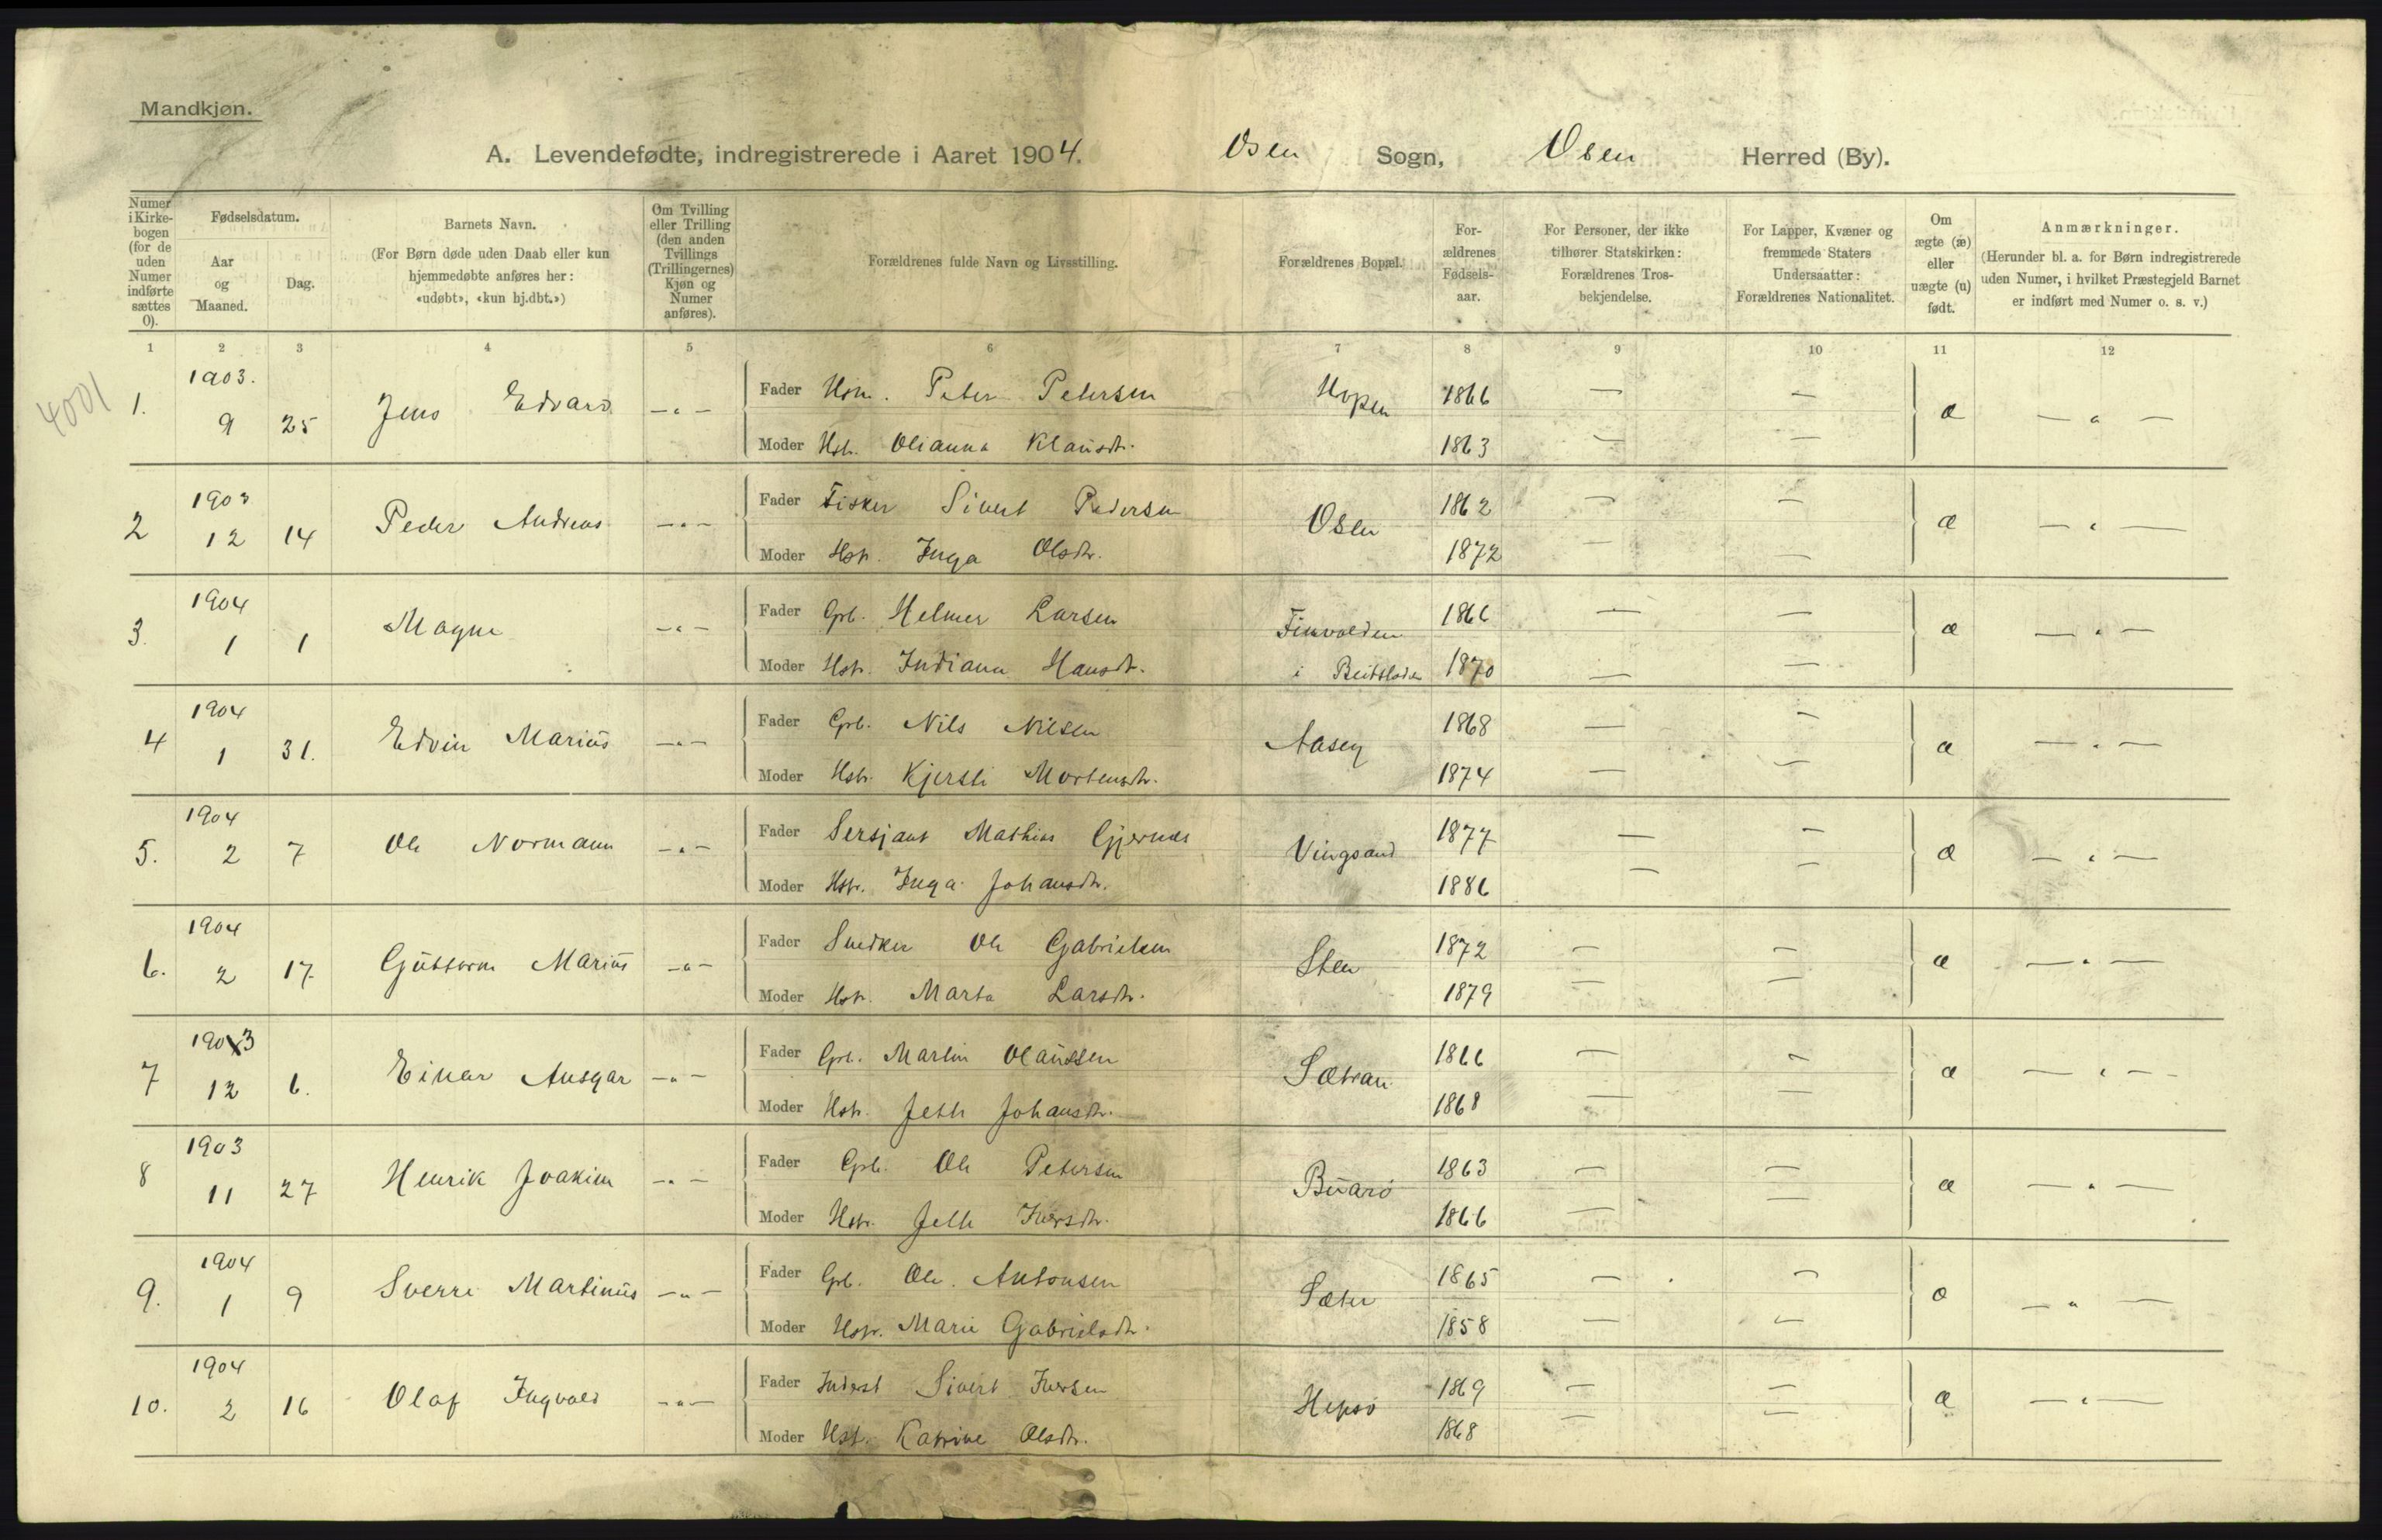 Mandkjøn.
A. Levendefødte, indregistrerede i Aaret 1904. Osen Sogn, Osen Herred (By).
Numer i Kirkebogen (for de uden Numer indførte sættes 0).
Fødselsdatum.
Aar og Maaned.
Dag.
Barnets Navn.
(For Børn døde uden Daab eller kun hjemmedøbte anføres her: «udøbt», «kun hj.dbt.»)
Om Tvilling eller Trilling (den anden Tvillings (Trillingernes) Kjøn og Numer anføres).
Forældrenes fulde Navn og Livsstilling.
Forældrenes Bopæl.
Forældrenes Fødselsaar.
For Personer, der ikke tilhører Statskirken: Forældrenes Trosbekjendelse.
For Lapper, Kvæner og fremmede Staters Undersaatter: Forældrenes Nationalitet.
Om ægte (æ) eller uægte (u) født.
Anmærkninger.
(Herunder bl. a. for Børn indregistrerede uden Numer, i hvilket Præstegjeld Barnet er indført med Numer o. s. v.)
1 2 3 4 5 6 7 8 9 10 11 12
4001
1. 1903. 9 25 Jens Edvard -"- Fader Hsm. Peter Petersen Hopen 1866 — — æ — " —
Moder Hstr. Olianna Klausdtr. 1863 — —
2 1903 12 14 Peder Andreas -"- Fader Fisker Sivert Pedersen Osen 1862 — — æ — " —
Moder Hstr. Inga Olsdtr. 1872 — —
3. 1904 1 1 Magne -"- Fader Grb. Helmer Larsen Finvolden 1866 — — æ — " —
Moder Hstr. Indiana Hansdtr. i Beitstaden 1870 — —
4 1904 1 31. Edvin Marius -"- Fader Grb. Nils Nilsen Aaseg 1868 — — æ — " —
Moder Hstr. Kjersti Mortensdtr. 1874 — —
5. 1904 2 7 Ole Normann -"- Fader Sersjant Mathias Gjernes Vingsand 1877 — — æ — " —
Moder Hstr. Inga Johansdtr. 1886 — —
6. 1904 2 17 Guttorm Marius -"- Fader Snedker Ole Gabrielsen Sten 1872 — — æ — " —
Moder Hstr. Marta Larsdtr. 1879 — —
7 1903 12 6. Einar Ansgar -"- Fader Grb. Martin Olaussen Sætran 1866 — — æ — " —
Moder Hstr. Jette Johansdtr. 1868 — —
8 1903 11 27 Henrik Joakim -"- Fader Grb. Ole Petersen Buarø 1863 — — æ — " —
Moder Hstr. Jette Iversdtr. 1866 — —
9. 1904 1 9 Sverre Martinus -"- Fader Grb. Ole Antonsen Sæter 1865 — — æ — " —
Moder Hstr. Marie Gabrielsdtr. 1858 — —
10. 1904 2 16 Olaf Ingvald -"- Fader Inderst Sivert Iversen Hepsø 1869 — — æ — " —
Moder Hstr. Katrine Olsdtr. 1868 — —